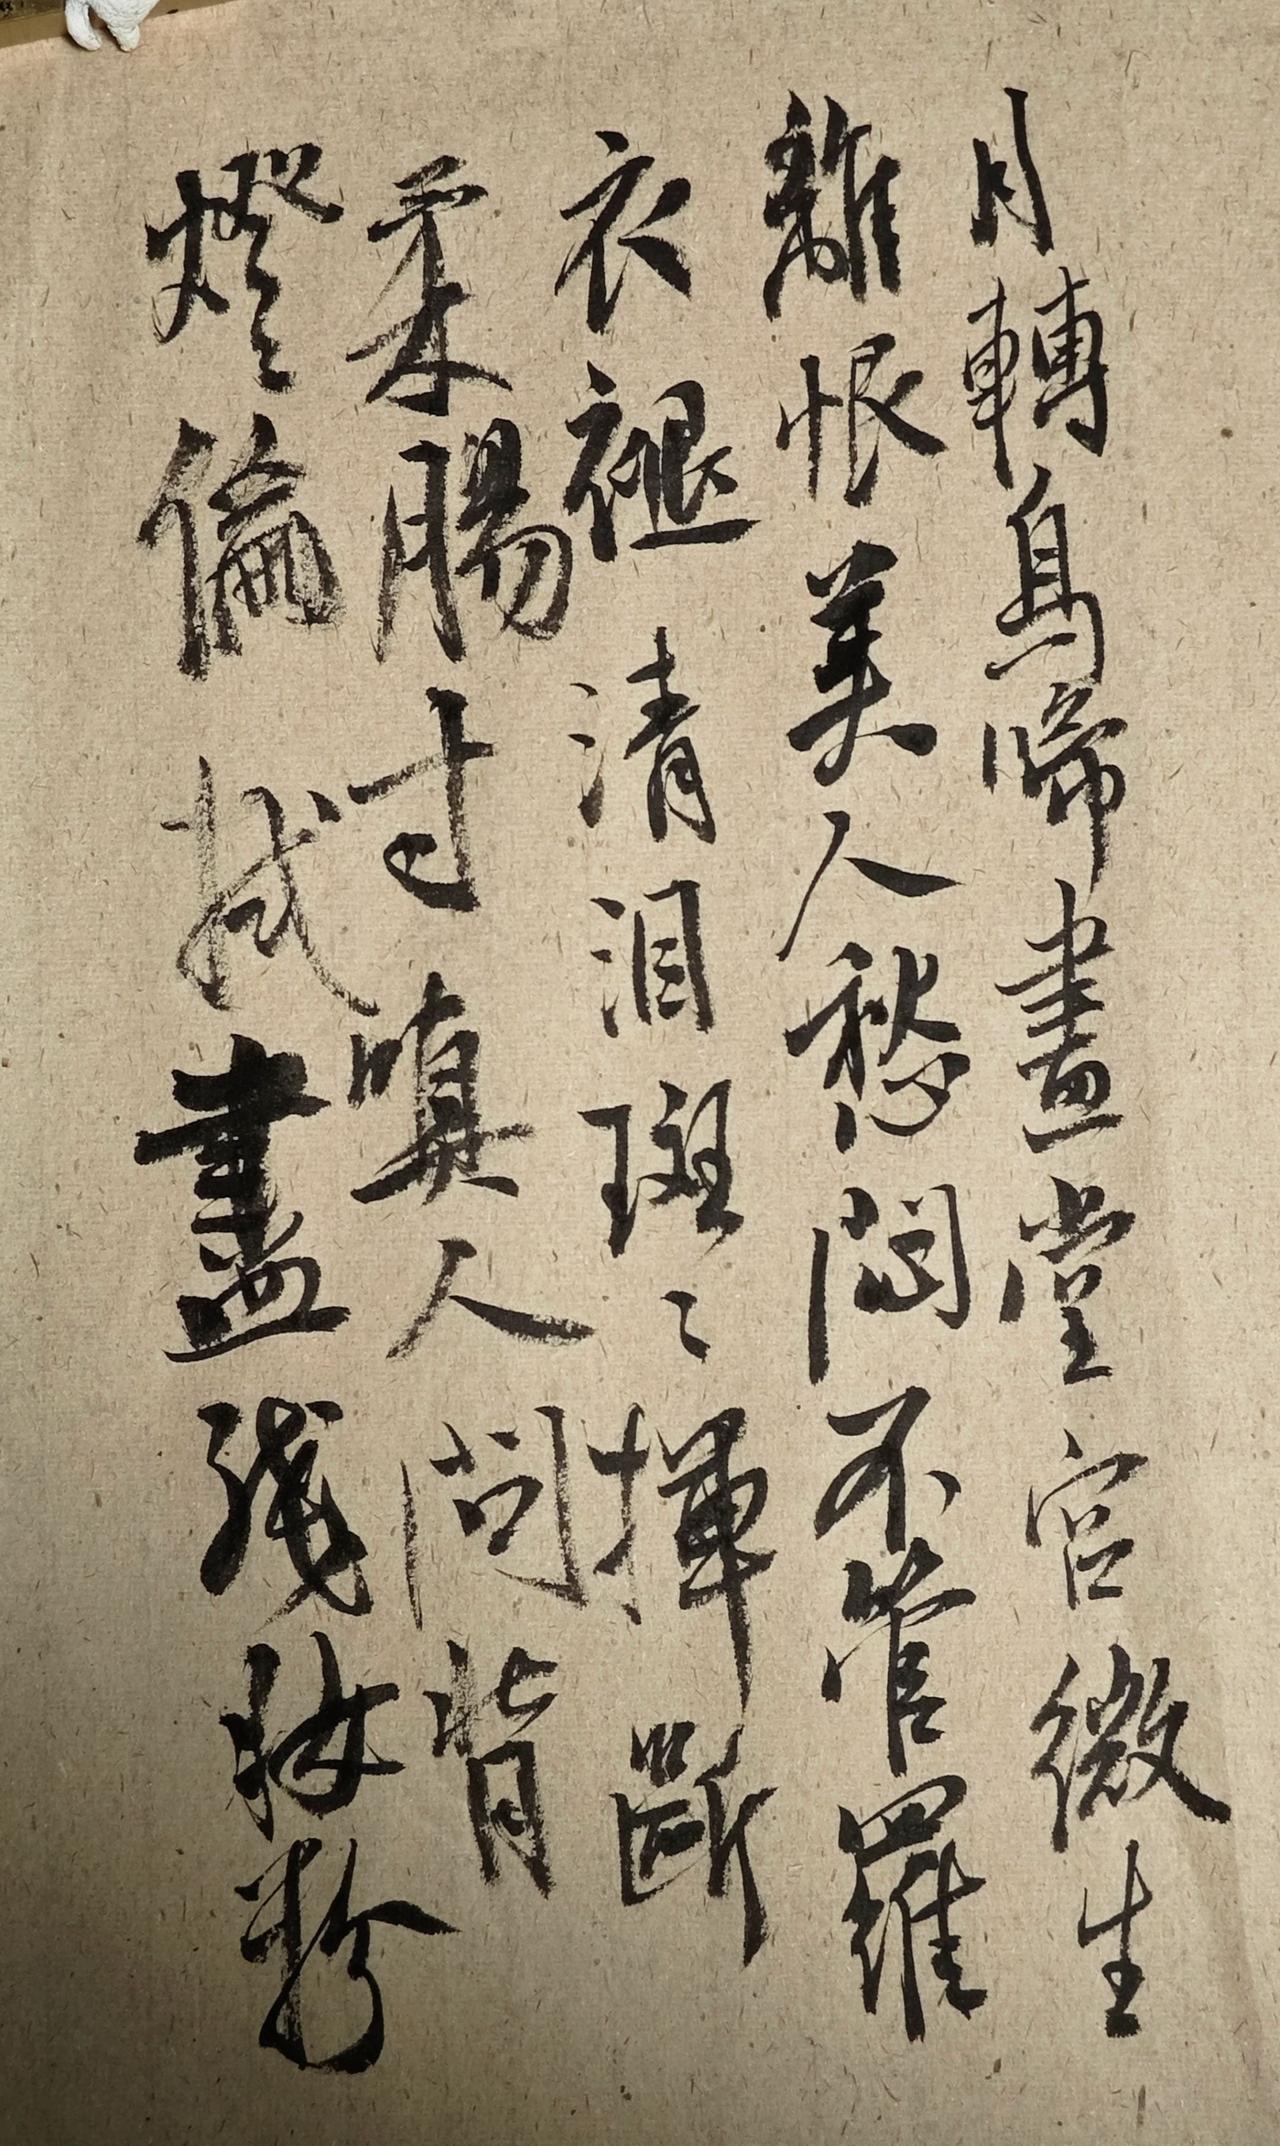 月轉烏啼畫堂宮徵生
離恨美人愁悶不管羅
衣褪清泪斑〻揮斷
柔腸寸嗔人問背
燈偷拭盡殘妝粉